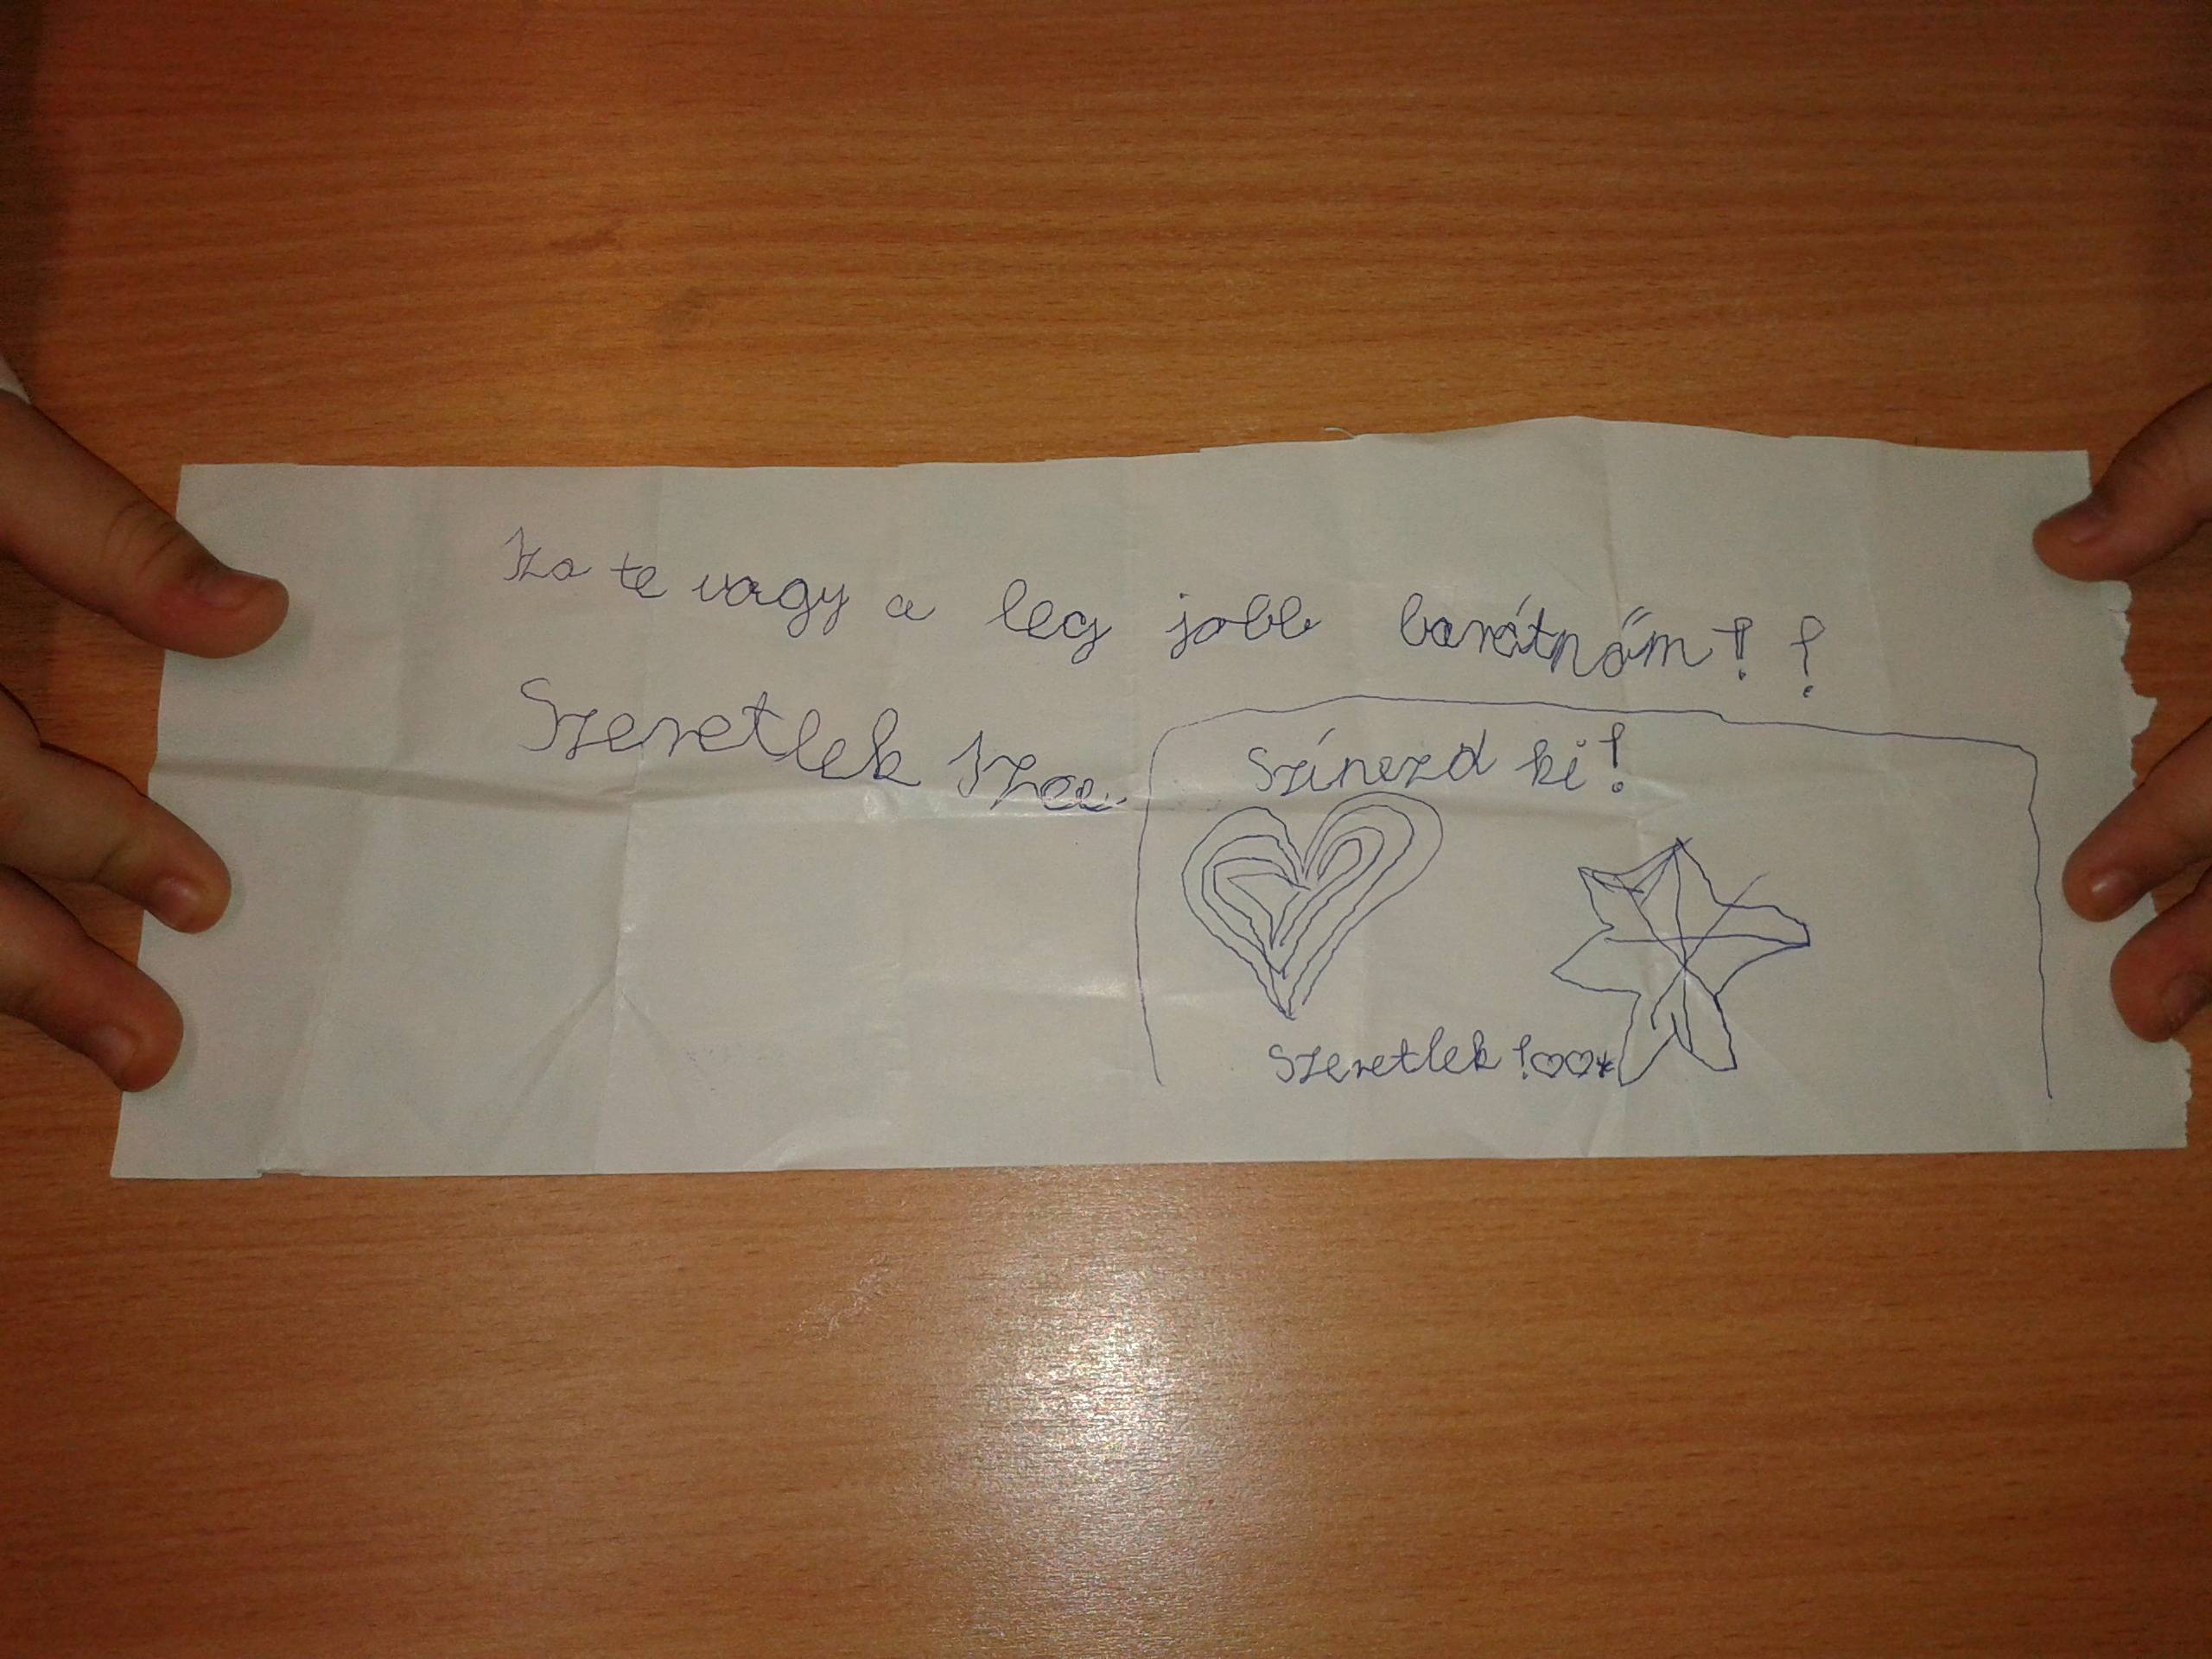 Iza te vagy a leg jobb barátnőm! !
Szeretlek Iza
Színezd ki!
Szeretlek !♡♡*